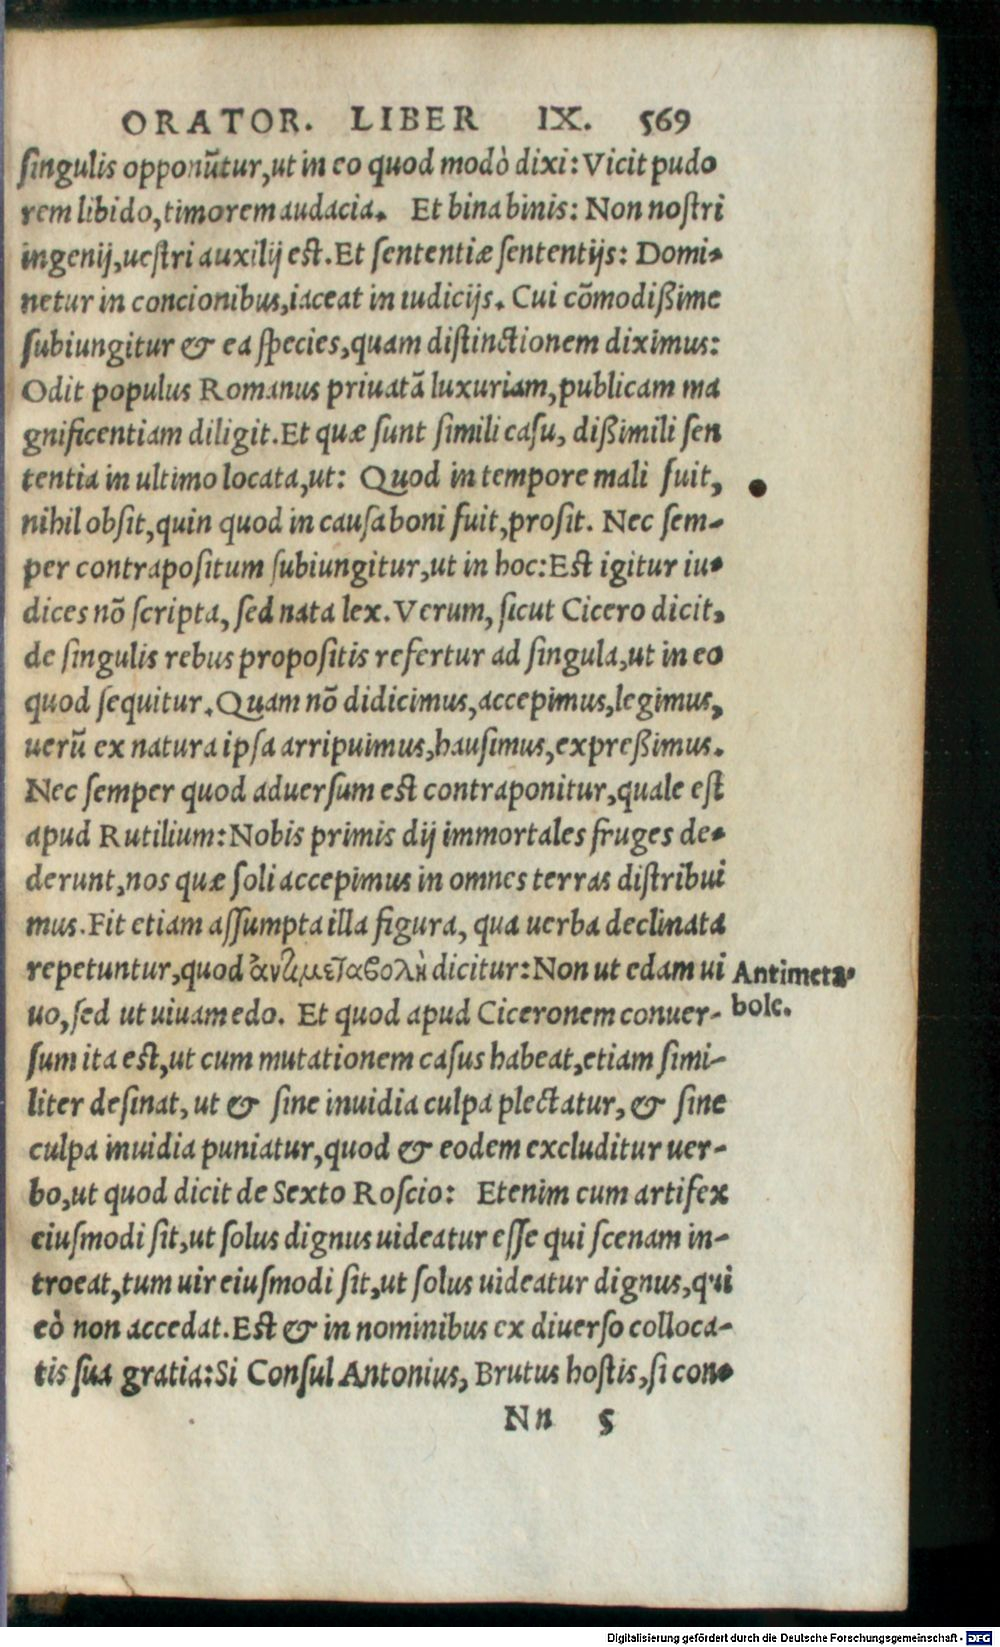 ORATOR. LIBER IX. 569
singulis opponũtur, ut in eo quod modò dixi: Vicit pudo
rem libido, timorem audacia. Et bina binis: Non nostri
ingenij, uestri auxilij est. Et sententiæ sententijs: Domi-
netur in concionibus, iaceat in iudicijs. Cui cõmodißime
subiungitur & ea species, quam distinctionem diximus:
Odit populus Romanus priuatã luxuriam, publicam ma
gnificentiam diligit. Et quæ sunt simili casu, dißimili sen
tentia in ultimo locata, ut: Quod in tempore mali fuit,
nihil obsit, quin quod in causa boni fuit, prosit. Nec sem-
per contrapositum subiungitur, ut in hoc: Est igitur iu-
dices nõ scripta, sed nata lex. Verum, sicut Cicero dicit,
de singulis rebus propositis refertur ad singula, ut in eo
quod sequitur. Quam nõ didicimus, accepimus, legimus,
uerũ ex natura ipsa arripuimus, hausimus, expreßimus.
Nec semper quod aduersum est contraponitur, quale est
apud Rutilium: Nobis primis dij immortales fruges de-
derunt, nos quæ soli accepimus in omnes terras distribui
mus. Fit etiam assumpta illa figura, qua uerba declinata
repetuntur, quod ἀντιμεταβολὴ dicitur: Non ut edam ui
uo, sed ut uiuam edo. Et quod apud Ciceronem conuer-
sum ita est, ut cum mutationem casus habeat, etiam simi-
liter desinat, ut & sine inuidia culpa plectatur, & sine
culpa inuidia puniatur, quod & eodem excluditur uer-
bo, ut quod dicit de Sexto Roscio: Etenim cum artifex
eiusmodi sit, ut solus dignus uideatur esse qui scenam in-
troeat, tum uir eiusmodi sit, ut solus uideatur dignus, qui
eò non accedat. Est & in nominibus ex diuerso colloca-
tis sua gratia: Si Consul Antonius, Brutus hostis, si con-
Nn 5
Antimeta-
bole.
Digitalisierung gefördert durch die Deutsche Forschungsgemeinschaft - DFG